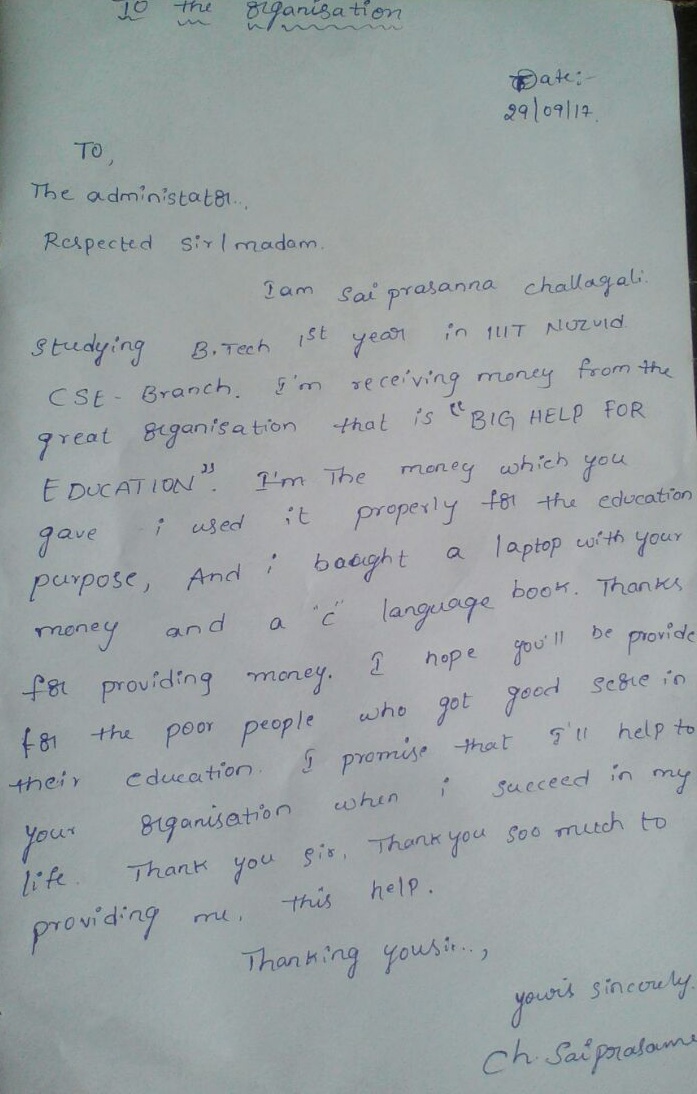 To the organisation
Date:-
29/09/17.
TO,
The administator..,
Respected sir/madam.
I am Sai prasanna challagali.
studying B.Tech 1st year in IIIT NUZVID
CSE- Branch. I'm receiving money from the
great organisation that is "BIG HELP FOR
EDUCATION". I'm The money which you
gave i used it properly for the education
purpose, And i baught a laptop with your
money and a "c" language book. Thanks
for providing money. I hope you'll be provide
for the poor people who got good score in
their education. I promise that I'll help to
your organisation when i succeed in my
life. Thank you sir. Thank you soo much to
providing me. this help.
Thanking yousir..,
yours sincerely.
Ch. Saiprasanna